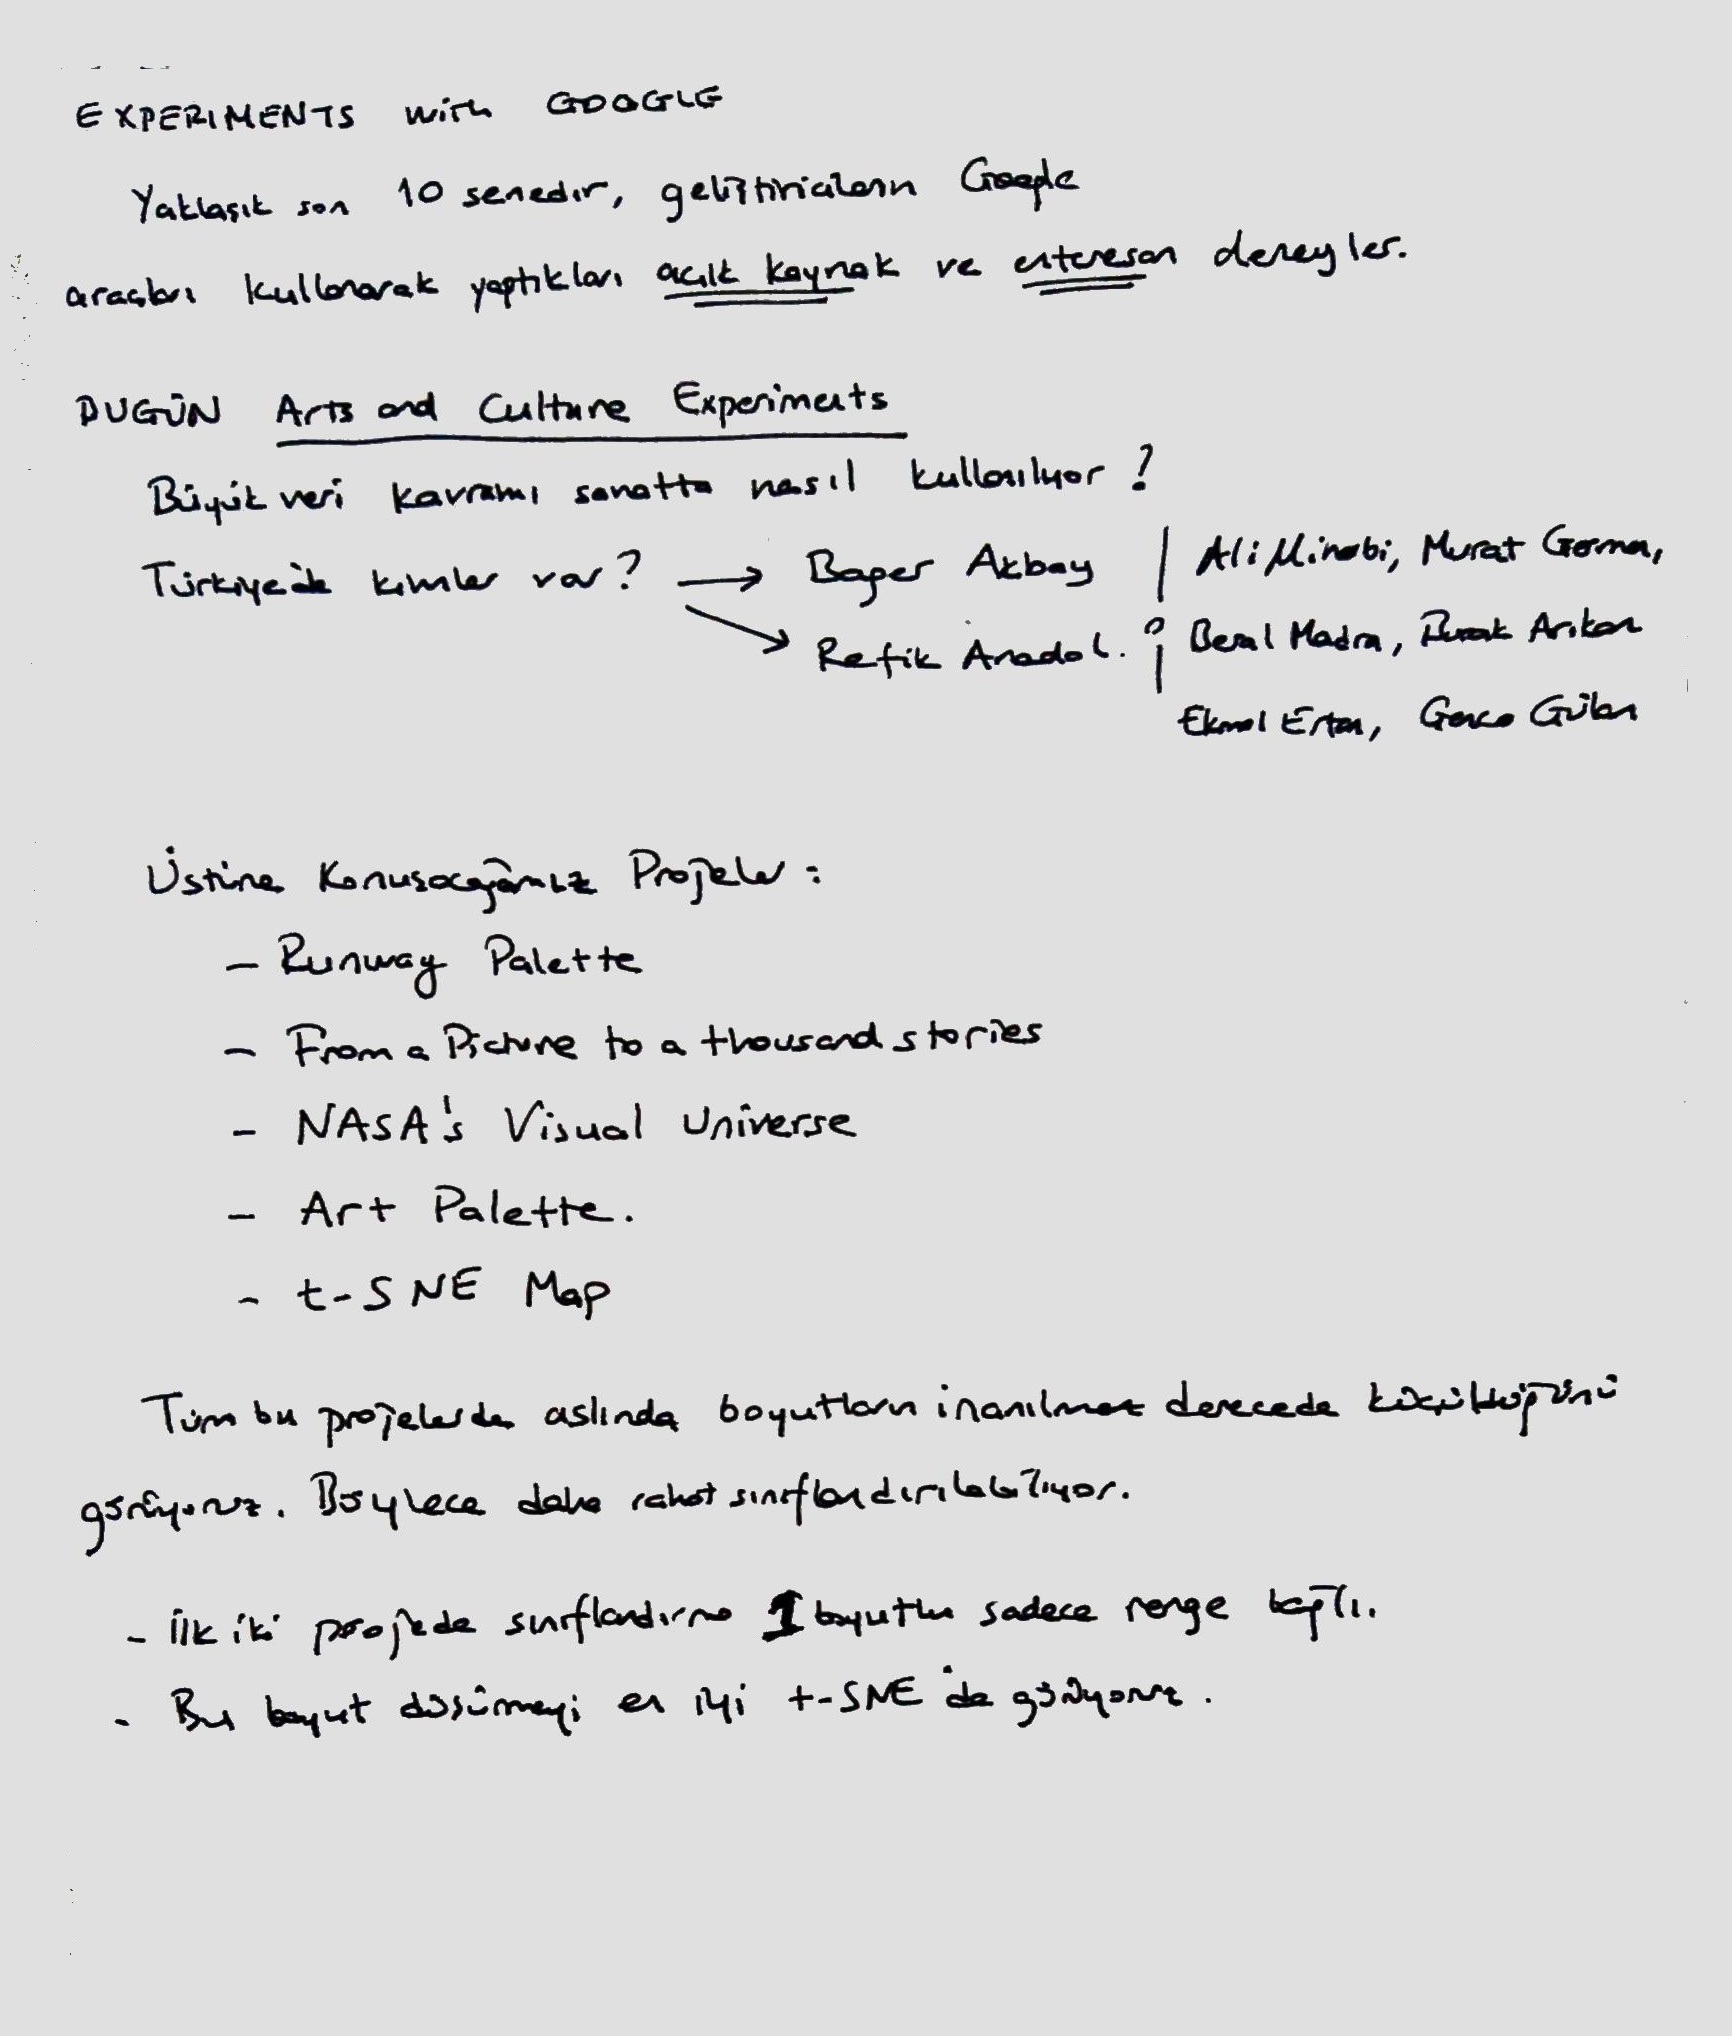 EXPERIMENTS with GOOGLE
Yaklaşık son 10 senedir, geliştiricilerin Google
araçları kullanarak yaptıkları açık kaynak ve enteresan deneyler.
BUGÜN Arts and Culture Experiments
Büyük veri kavramı sanatta nasıl kullanılıyor?
Türkiye'de kimler var? → Bager Akbay | Ali Minabi, Murat Germen,
→ Refik Anadol. Beral Madra, Burak Arıkan
Ekmel Ertan, Genco Gülan
Üstüne Konuşacağımız Projeler :
- Runway Palette
- From a Picture to a thousand stories
- NASA's Visual Universe
- Art Palette.
- t-SNE Map
Tüm bu projelerde aslında boyutların inanılmaz derecede küçüldüğünü
görüyoruz. Böylece daha rahat sınıflandırılabiliyor.
- İlk iki projede sınıflandırma 1 boyutlu sadece renge bağlı.
- Bu boyut düşürmeyi en iyi t-SNE'de görüyoruz.